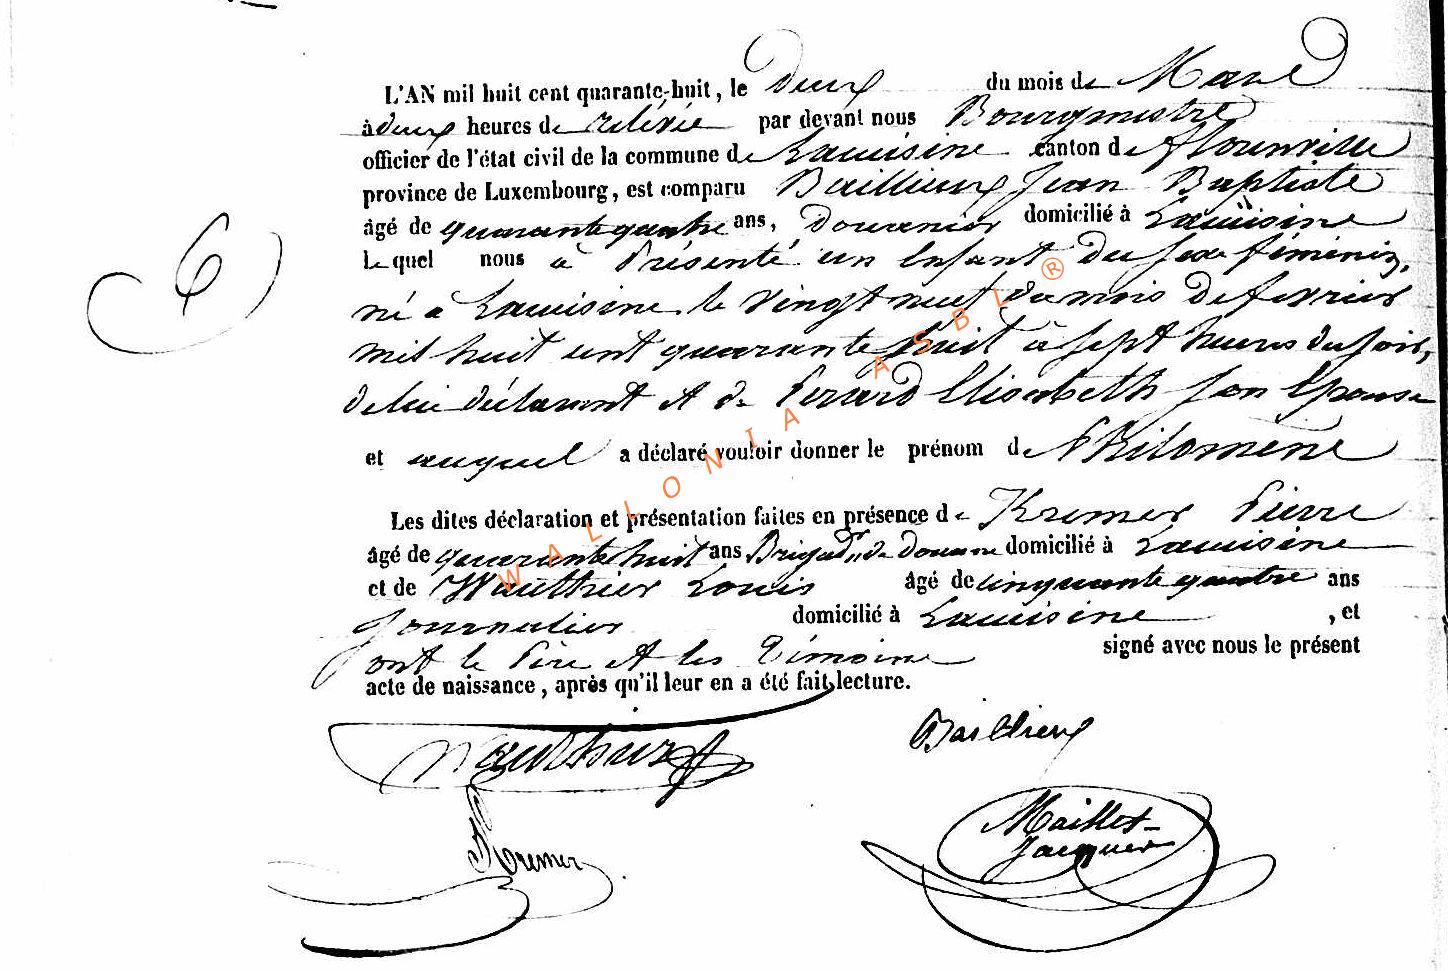 L'AN mil huit cent quarante-huit, le deux du mois de Mars
à deux heures de relevée par devant nous Bourgmestre
officier de l'état civil de la commune de Lacuisine canton de florenville
province de Luxembourg, est comparu Baillieux Jean Baptiste
âgé de quarante quatre ans, Douanier domicilié à Lacuisine
lequel nous à Présenté un Enfant du sexe féminin,
6
né à Lacuisine le vingt neuf du mois de fevrier
mil huit cent quarante huit à sept heures du soir,
de lui déclarant et de Perard Elisabeth son Epouse
et auquel a déclaré vouloir donner le prénom de Philomène
Les dites déclaration et présentation faites en présence de Kremer Pierre
âgé de quarante huit ans Brigadr de Douane domicilié à Lacuisine
et de Wauthier Louis âgé de cinquante quatre ans
Journalier domicilié à Lacuisine, et
ont le Père et les Témoins signé avec nous le présent
acte de naissance, après qu'il leur en a été fait lecture.
Wauthier
Baillieux
Kremer
Maillet-
Jacquer
WALLONIA ASBL ®